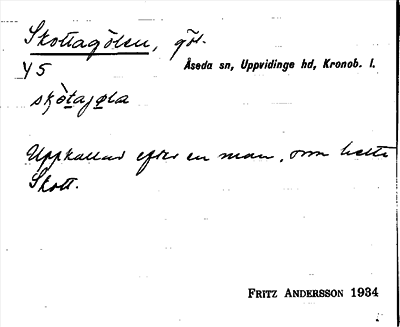 Skottagölen, göl.
Y5 Åseda sn, Uppvidinge hd, Kronob. l.
skòtajøla
Uppkallad efter en man, som hette
Skott.
FRITZ ANDERSSON 1934